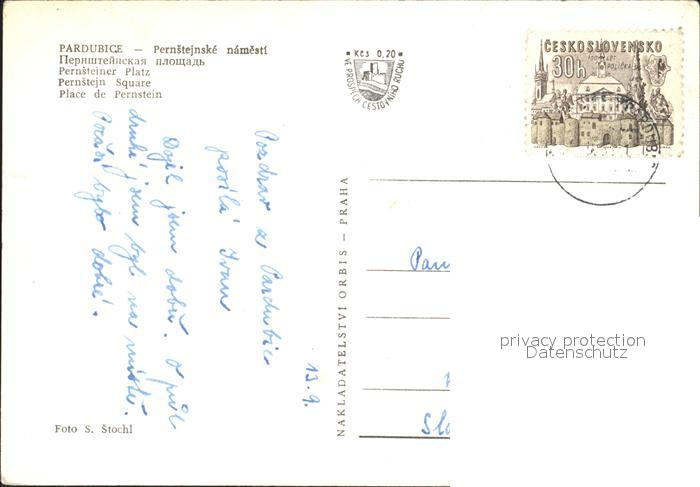 PARDUBICE — Pernštejnské náměstí
Пернштейнская площадь
Pernšteiner Platz
Pernštejn Square
Place de Pernstein
Kčs 0,20
VE PROSPĚCH CESTOVNÍHO RUCHU
ČESKOSLOVENSKO
30h
POLIČKA
Pozdrav z Pardubic
posílá Ivan
Dojel jsem dobře. O půl
druhé jsem byl na místě.
Počasí bylo dobré.
13. 9.
NAKLADATELSTVÍ ORBIS — PRAHA
Pan
Slo
privacy protection
Datenschutz
Foto S. Štochl